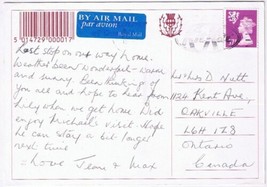 BY AIR MAIL
par avion
Royal Mail
5 014729 000017
Last stop on our way home.
Weather been wonderful - warm
and sunny. Been thinking of
you all and hope to hear from
Judy when we get home. Did
enjoy Michael's visit. Hope
he can stay a bit longer
next time
Love Jean & Max
Mr & Mrs D Nutt
1124 Kent Ave
OAKVILLE
L6H 1Z8
Ontario
Canada